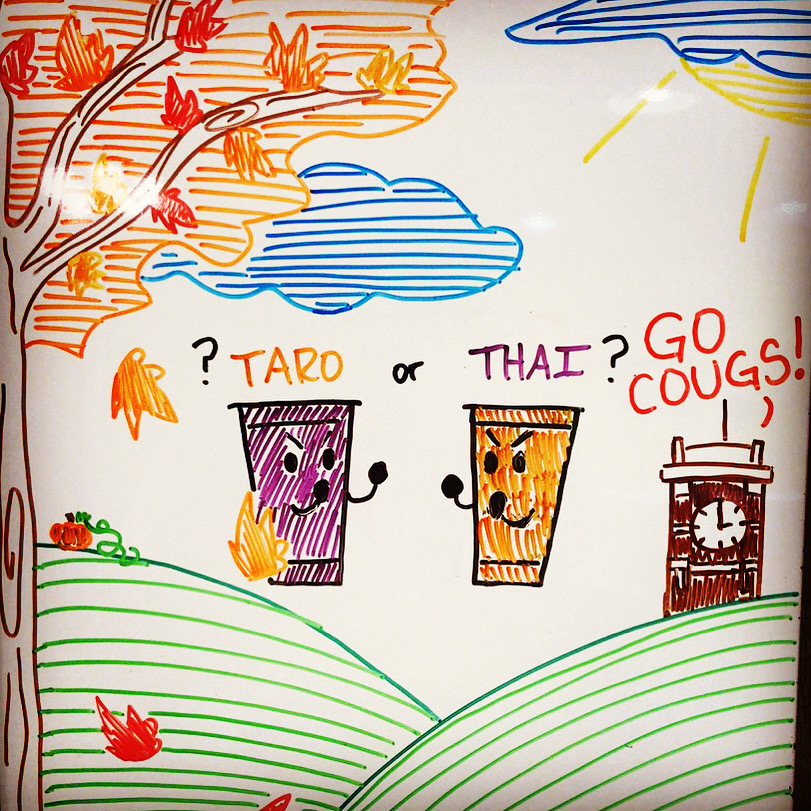 ? TARO or THAI ?
GO
COUGS!